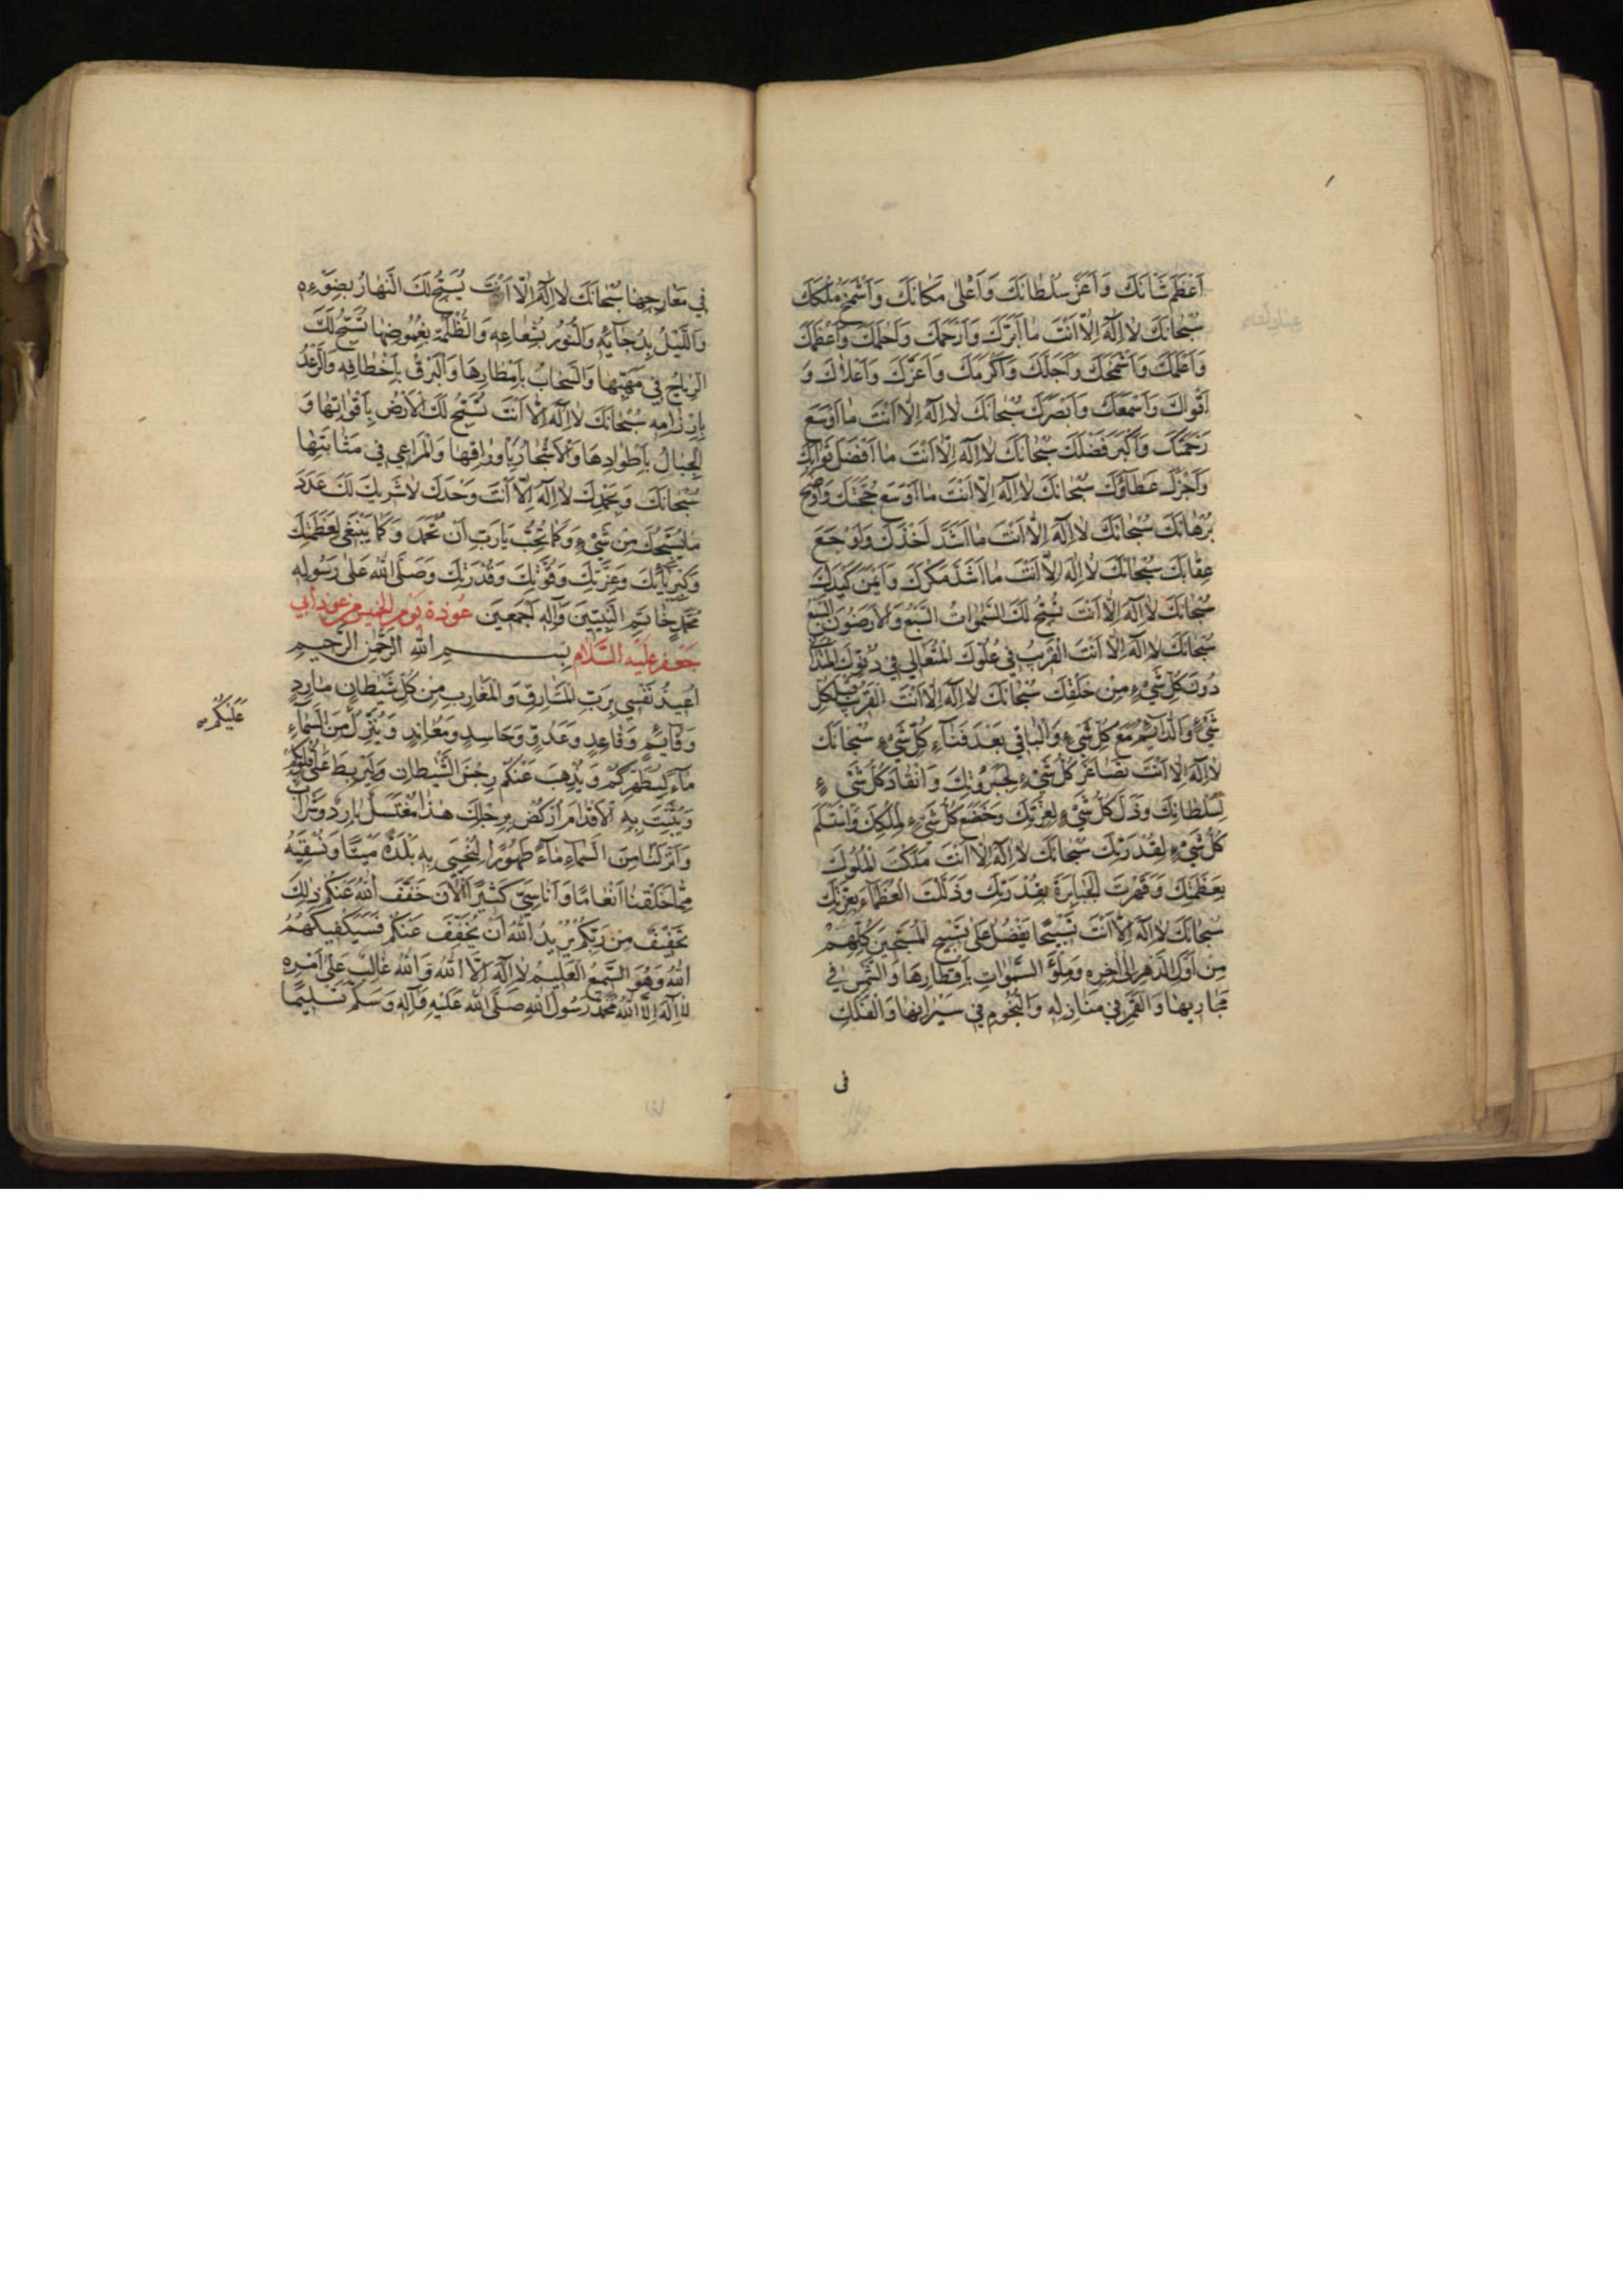 اَعْظَمَ شَانَكَ وَاَعَزَّ سُلْطانَكَ وَاَعْلى مَكانَكَ وَاَشْمَخَ مُلْكَكَ
سُبْحانَكَ لا اِلهَ اِلّا اَنْتَ ما اَبَرَّكَ وَاَرْحَمَكَ وَاَحْلَمَكَ وَاَعْظَمَكَ
وَاَعْلَمَكَ وَاَسْمَحَكَ وَاَجَلَّكَ وَاَكْرَمَكَ وَاَعَزَّكَ وَاَعْلاكَ وَ
اَقْواكَ وَاَسْمَعَكَ وَاَبْصَرَكَ سُبْحانَكَ لا اِلهَ اِلّا اَنْتَ ما اَوْسَعَ
رَحْمَتَكَ وَاَكْبَرَ فَضْلَكَ سُبْحانَكَ لا اِلهَ اِلّا اَنْتَ ما اَفْضَلَ ثَوابَكَ
وَاَجْزَلَ عَطاؤَكَ سُبْحانَكَ لا اِلهَ اِلّا اَنْتَ ما اَوْسَعَ حُجَّتَكَ وَاَوْضَحَ
بُرْهانَكَ سُبْحانَكَ لا اِلهَ اِلّا اَنْتَ ما اَشَدَّ اَخْذَكَ وَاَوْجَعَ
عِقابَكَ سُبْحانَكَ لا اِلهَ اِلّا اَنْتَ ما اَشَدَّ مَكْرَكَ وَاَمْتَنَ كَيْدَكَ
سُبْحانَكَ لا اِلهَ اِلّا اَنْتَ تُسَبِّحُ لَكَ السَّمواتُ السَّبْعُ وَالْاَرَضُونَ السَّبْعُ
سُبْحانَكَ لا اِلهَ اِلّا اَنْتَ الْقَريبُ في عُلُوِّكَ الْمُتَعالي في دُنُوِّكَ الْمُتَداني
دُونَ كُلِّ شَيْءٍ مِنْ خَلْقِكَ سُبْحانَكَ لا اِلهَ اِلّا اَنْتَ الْقَريبُ قَبْلَ كُلِّ
شَيْءٍ وَالدّائِمُ مَعَ كُلِّ شَيْءٍ وَالْباقي بَعْدَ فَنآءِ كُلِّ شَيْءٍ سُبْحانَكَ
لا اِلهَ اِلّا اَنْتَ تَصاغَرَ كُلُّ شَيْءٍ لِجَبَرُوتِكَ وَانْقادَ كُلُّ شَيْءٍ
لِسُلْطانِكَ وَذَلَّ كُلُّ شَيْءٍ لِعِزَّتِكَ وَخَضَعَ كُلُّ شَيْءٍ لِمُلْكِكَ وَاسْتَسْلَمَ
كُلُّ شَيْءٍ لِقُدْرَتِكَ سُبْحانَكَ لا اِلهَ اِلّا اَنْتَ مَلَكْتَ الْمُلُوكَ
بِعَظَمَتِكَ وَقَهَرْتَ الْجَبابِرَةَ بِقُدْرَتِكَ وَذَلَّلْتَ الْعُظَمآءَ بِعِزَّتِكَ
سُبْحانَكَ لا اِلهَ اِلّا اَنْتَ تَسْبيحًا يَفْضُلُ عَلى تَسْبيحِ الْمُسَبِّحينَ كُلِّهِمْ
مِنْ اَوَّلِ الدَّهْرِ اِلى آخِرِهِ وَمِلْؤَ السَّمواتِ بِاَقْطارِها وَالشَّمْسِ في
مَجاريها وَالْقَمَرِ في مَنازِلِهِ وَالنُّجُومِ في سَيَرانِها وَالْفَلَكِ
فى
في مَعارِجِها سُبْحانَكَ لا اِلهَ اِلّا اَنْتَ يُسَبِّحُ لَكَ النَّهارُ بِضَوْءِهِ
وَاللَّيْلُ بِدُجائِهِ وَالنُّورُ بِشُعاعِهِ وَالظُّلْمَةُ بِغُمُوضِها تُسَبِّحُ لَكَ
الرِّياحُ في مَهَبِّها وَالسَّحابُ بِاَمْطارِها وَالْبَرْقُ بِاَخْطافِهِ وَالرَّعْدُ
بِاِرْزامِهِ سُبْحانَكَ لا اِلهَ اِلّا اَنْتَ تُسَبِّحُ لَكَ الْاَرْضُ بِاَقْواتِها وَ
الْجِبالُ بِاَطْوادِها وَالْاَشْجارُ بِاَوْراقِها وَالْمَراعي في مَنابِتِها
سُبْحانَكَ وَبِحَمْدِكَ لا اِلهَ اِلّا اَنْتَ وَحْدَكَ لا شَريكَ لَكَ عَدَدَ
ما يُسَبِّحُكَ مِنْ شَيْءٍ وَكَما تُحِبُّ يا رَبِّ اَنْ تُحْمَدَ وَكَما يَنْبَغي لِعَظَمَتِكَ
وَكِبْرِيائِكَ وَعِزَّتِكَ وَقُوَّتِكَ وَقُدْرَتِكَ وَصَلَّى اللهُ عَلى رَسُولِهِ
مُحَمَّدٍ خاتَمِ النَّبِيّينَ وَآلِهِ اَجْمَعينَ عُوذة يَوْم الخميس من عوذ أبي
جَعْفر عَلَيْهِ السَّلام بِسْمِ اللهِ الرَّحْمنِ الرَّحيمِ
اُعيذُ نَفْسي بِرَبِّ الْمَشارِقِ وَالْمَغارِبِ مِنْ كُلِّ شَيْطانٍ مارِدٍ
وَقائِمٍ وَقاعِدٍ وَعَدُوٍّ وَحاسِدٍ وَمُعانِدٍ وَيُنَزِّلُ مِنَ السَّمآءِ
عَلَيْكُمْ
مآءً لِيُطَهِّرَكُمْ وَيُذْهِبَ عَنْكُمْ رِجْسَ الشَّيْطانِ وَلِيَرْبِطَ عَلى قُلُوبِكُمْ
وَيُثَبِّتَ بِهِ الْاَقْدامَ اُرْكُضْ بِرِجْلِكَ هذا مُغْتَسَلٌ بارِدٌ وَشَرابٌ
وَاَنْزَلْنا مِنَ السَّمآءِ مآءً طَهُورًا لِنُحْيِيَ بِهِ بَلْدَةً مَيْتًا وَنُسْقِيَهُ
مِمّا خَلَقْنا اَنْعامًا وَاَناسِيَّ كَثيرًا اَلْآنَ خَفَّفَ اللهُ عَنْكُمْ ذلِكَ
تَخْفيفٌ مِنْ رَبِّكُمْ يُريدُ اللهُ اَنْ يُخَفِّفَ عَنْكُمْ فَسَيَكْفيكَهُمُ
اللهُ وَهُوَ السَّميعُ الْعَليمُ لا اِلهَ اِلَّا اللهُ وَاللهُ غالِبٌ عَلى اَمْرِهِ
لا اِلهَ اِلَّا اللهُ مُحَمَّدٌ رَسُولُ اللهِ صَلَّى اللهُ عَلَيْهِ وَآلِهِ وَسَلَّمَ تَسْليمًا